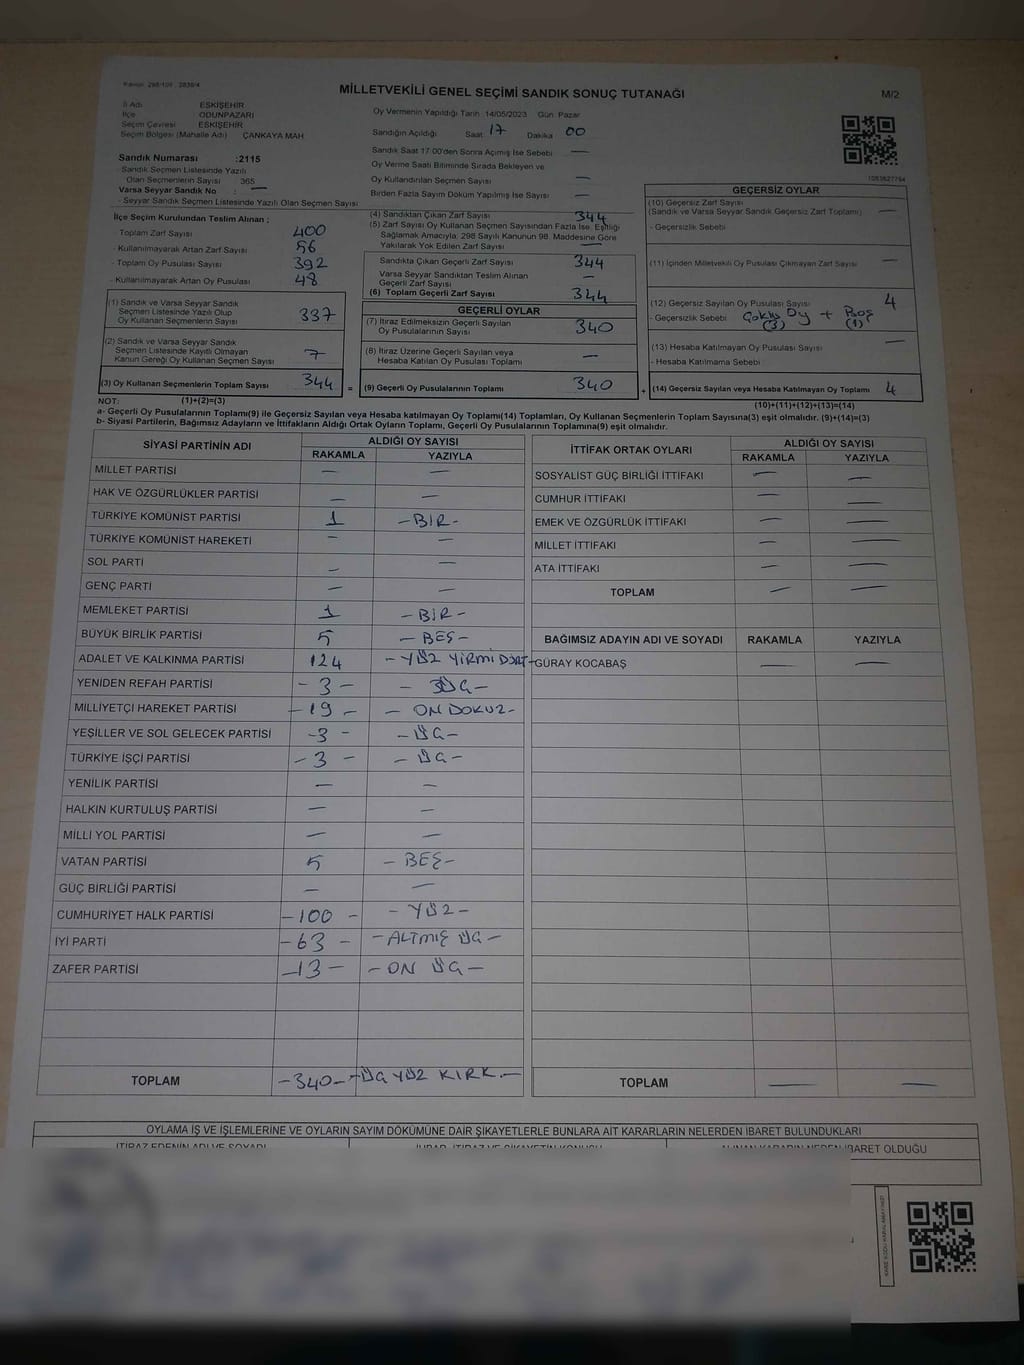 Kanun: 298/105 , 2839/4
MİLLETVEKİLİ GENEL SEÇİMİ SANDIK SONUÇ TUTANAĞI
M/2
İl Adı ESKİŞEHİR
İlçe ODUNPAZARI
Seçim Çevresi ESKİŞEHİR
Seçim Bölgesi (Mahalle Adı) ÇANKAYA MAH
Sandık Numarası :2115
- Sandık Seçmen Listesinde Yazılı
Olan Seçmenlerin Sayısı 365
Varsa Seyyar Sandık No : —
- Seyyar Sandık Seçmen Listesinde Yazılı Olan Seçmen Sayısı
Oy Vermenin Yapıldığı Tarih 14/05/2023 Gün Pazar
Sandığın Açıldığı Saat 17 Dakika 00
Sandık Saat 17:00'den Sonra Açılmış İse Sebebi —
Oy Verme Saati Bitiminde Sırada Bekleyen ve
Oy Kullandırılan Seçmen Sayısı —
Birden Fazla Sayım Döküm Yapılmış İse Sayısı —
1083827794
İlçe Seçim Kurulundan Teslim Alınan ;
- Toplam Zarf Sayısı 400
- Kullanılmayarak Artan Zarf Sayısı 56
- Toplam Oy Pusulası Sayısı 392
- Kullanılmayarak Artan Oy Pusulası 48
(1) Sandık ve Varsa Seyyar Sandık
Seçmen Listesinde Yazılı Olup
Oy Kullanan Seçmenlerin Sayısı 337
(2) Sandık ve Varsa Seyyar Sandık
Seçmen Listesinde Kayıtlı Olmayan
Kanun Gereği Oy Kullanan Seçmen Sayısı 7
(3) Oy Kullanan Seçmenlerin Toplam Sayısı 344 =
(4) Sandıktan Çıkan Zarf Sayısı 344
(5) Zarf Sayısı Oy Kullanan Seçmen Sayısından Fazla İse, Eşitliği
Sağlamak Amacıyla; 298 Sayılı Kanunun 98. Maddesine Göre
Yakılarak Yok Edilen Zarf Sayısı —
Sandıkta Çıkan Geçerli Zarf Sayısı 344
Varsa Seyyar Sandıktan Teslim Alınan
Geçerli Zarf Sayısı —
(6) Toplam Geçerli Zarf Sayısı 344
GEÇERLİ OYLAR
(7) İtiraz Edilmeksizin Geçerli Sayılan
Oy Pusulalarının Sayısı 340
(8) İtiraz Üzerine Geçerli Sayılan veya
Hesaba Katılan Oy Pusulası Toplamı —
(9) Geçerli Oy Pusulalarının Toplamı 340 +
GEÇERSİZ OYLAR
(10) Geçersiz Zarf Sayısı
(Sandık ve Varsa Seyyar Sandık Geçersiz Zarf Toplamı) —
- Geçersizlik Sebebi
(11) İçinden Milletvekili Oy Pusulası Çıkmayan Zarf Sayısı —
(12) Geçersiz Sayılan Oy Pusulası Sayısı 4
- Geçersizlik Sebebi Çoklu Oy + Boş
(3) (1)
(13) Hesaba Katılmayan Oy Pusulası Sayısı —
- Hesaba Katılmama Sebebi
(14) Geçersiz Sayılan veya Hesaba Katılmayan Oy Toplamı 4
NOT: (1)+(2)=(3)
(10)+(11)+(12)+(13)=(14)
a- Geçerli Oy Pusulalarının Toplamı(9) ile Geçersiz Sayılan veya Hesaba katılmayan Oy Toplamı(14) Toplamları, Oy Kullanan Seçmenlerin Toplam Sayısına(3) eşit olmalıdır. (9)+(14)=(3)
b- Siyasi Partilerin, Bağımsız Adayların ve İttifakların Aldığı Ortak Oyların Toplamı, Geçerli Oy Pusulalarının Toplamına(9) eşit olmalıdır.
SİYASİ PARTİNİN ADI ALDIĞI OY SAYISI
RAKAMLA YAZIYLA
MİLLET PARTİSİ — —
HAK VE ÖZGÜRLÜKLER PARTİSİ — —
TÜRKİYE KOMÜNİST PARTİSİ 1 -BİR-
TÜRKİYE KOMÜNİST HAREKETİ — —
SOL PARTİ — —
GENÇ PARTİ — —
MEMLEKET PARTİSİ 1 -BİR-
BÜYÜK BİRLİK PARTİSİ 5 -BEŞ-
ADALET VE KALKINMA PARTİSİ 124 -YÜZ YİRMİ DÖRT-
YENİDEN REFAH PARTİSİ -3- -ÜÇ-
MİLLİYETÇİ HAREKET PARTİSİ -19- -ON DOKUZ-
YEŞİLLER VE SOL GELECEK PARTİSİ -3- -ÜÇ-
TÜRKİYE İŞÇİ PARTİSİ -3- -ÜÇ-
YENİLİK PARTİSİ — —
HALKIN KURTULUŞ PARTİSİ — —
MİLLİ YOL PARTİSİ — —
VATAN PARTİSİ 5 -BEŞ-
GÜÇ BİRLİĞİ PARTİSİ — —
CUMHURİYET HALK PARTİSİ -100- -YÜZ-
İYİ PARTİ -63- -ALTMIŞ ÜÇ-
ZAFER PARTİSİ -13- -ON ÜÇ-
TOPLAM -340- -ÜÇ YÜZ KIRK.-
İTTİFAK ORTAK OYLARI ALDIĞI OY SAYISI
RAKAMLA YAZIYLA
SOSYALİST GÜÇ BİRLİĞİ İTTİFAKI — —
CUMHUR İTTİFAKI — —
EMEK VE ÖZGÜRLÜK İTTİFAKI — —
MİLLET İTTİFAKI — —
ATA İTTİFAKI — —
TOPLAM — —
BAĞIMSIZ ADAYIN ADI VE SOYADI RAKAMLA YAZIYLA
GÜRAY KOCABAŞ — —
TOPLAM — —
OYLAMA İŞ VE İŞLEMLERİNE VE OYLARIN SAYIM DÖKÜMÜNE DAİR ŞİKAYETLERLE BUNLARA AİT KARARLARIN NELERDEN İBARET BULUNDUKLARI
İTİRAZ EDENİN ADI VE SOYADI
ALINAN KARARIN NEDEN İBARET OLDUĞU